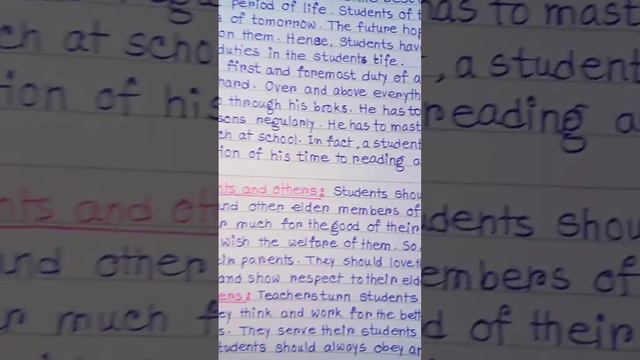 period of life. Students of t
s of tomorrow. The future hop
on them. Hense, Students hav
duties in the students life.
first and foremost duty of a
hand. Over and above everyth
through his books. He has to
sons regularly. He has to mast
ch at school. In fact, a student
ion of his time to reading a
nts and others: Students shou
and other elder members of
n much for the good of their
wish the welfare of them. So
ir parents. They should love t
and show respect to their eld
ers: Teachersturn students
ey think and work for the bett
s. They serve their students
tudents should always obey an